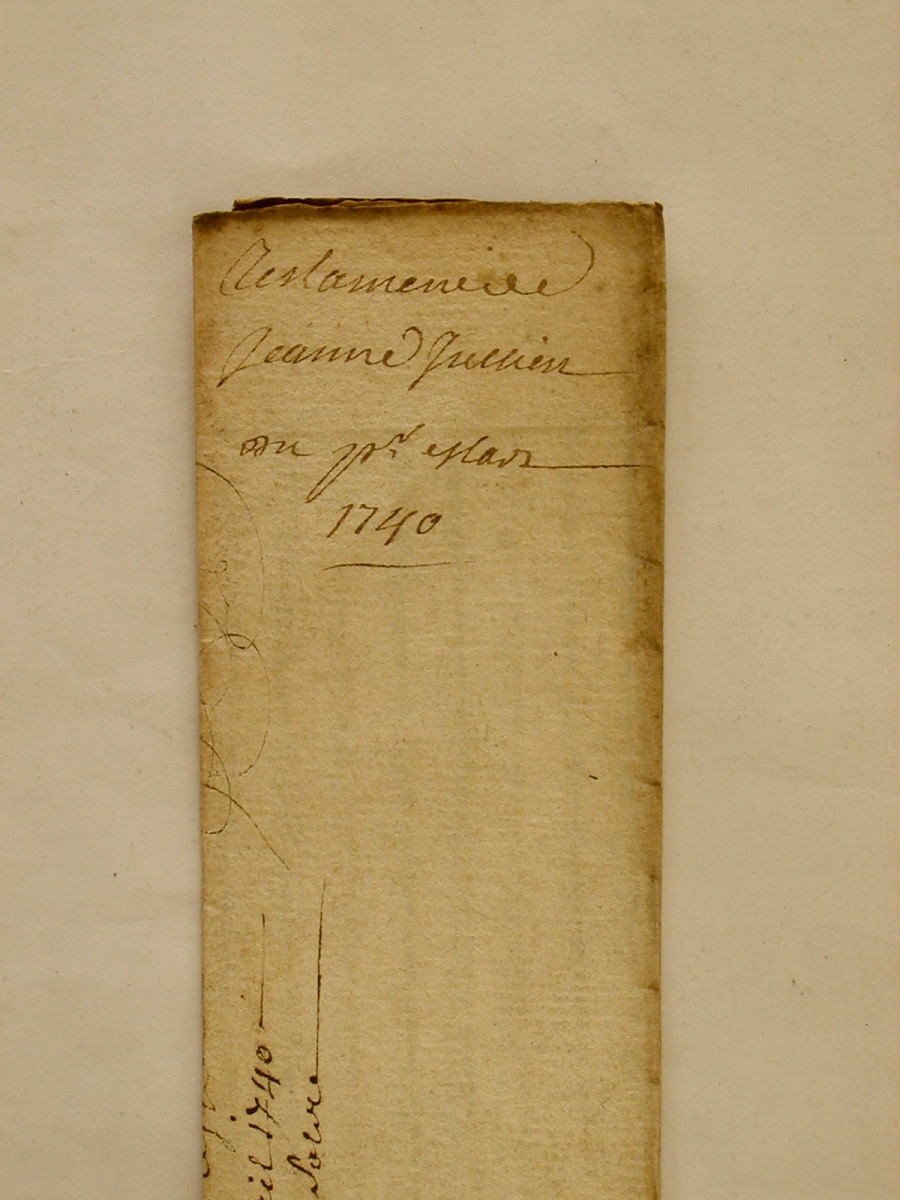 Testament de
Jeanne Jullien
du pr mars
1740
il 1740